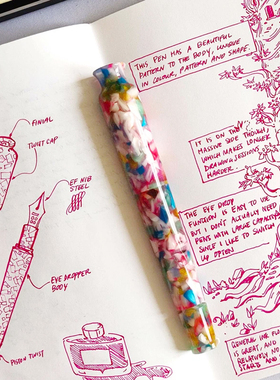 THIS PEN HAS A BEAUTIFUL
PATTERN TO THE BODY, UNIQUE
IN COLOUR, PATTERN AND SHAPE.
FINIAL
TWIST CAP
EF NIB
STEEL
EYE DROPPER
BODY
PISTON TWIST
IT IS ON THE
MASSIVE SIDE THOUGH,
WHICH MAKES LONGER
DRAWING SESSIONS
HARDER.
THE EYE DROP
FUNCTION IS EASY TO USE
BUT I DON'T ACTUALLY NEED
PENS WITH LARGE CAPACITY
SINCE I LIKE TO SWITCH
UP OFTEN
GENERAL INK FL
IS GREAT, AND
RELATIVELY NO
STARTS AND